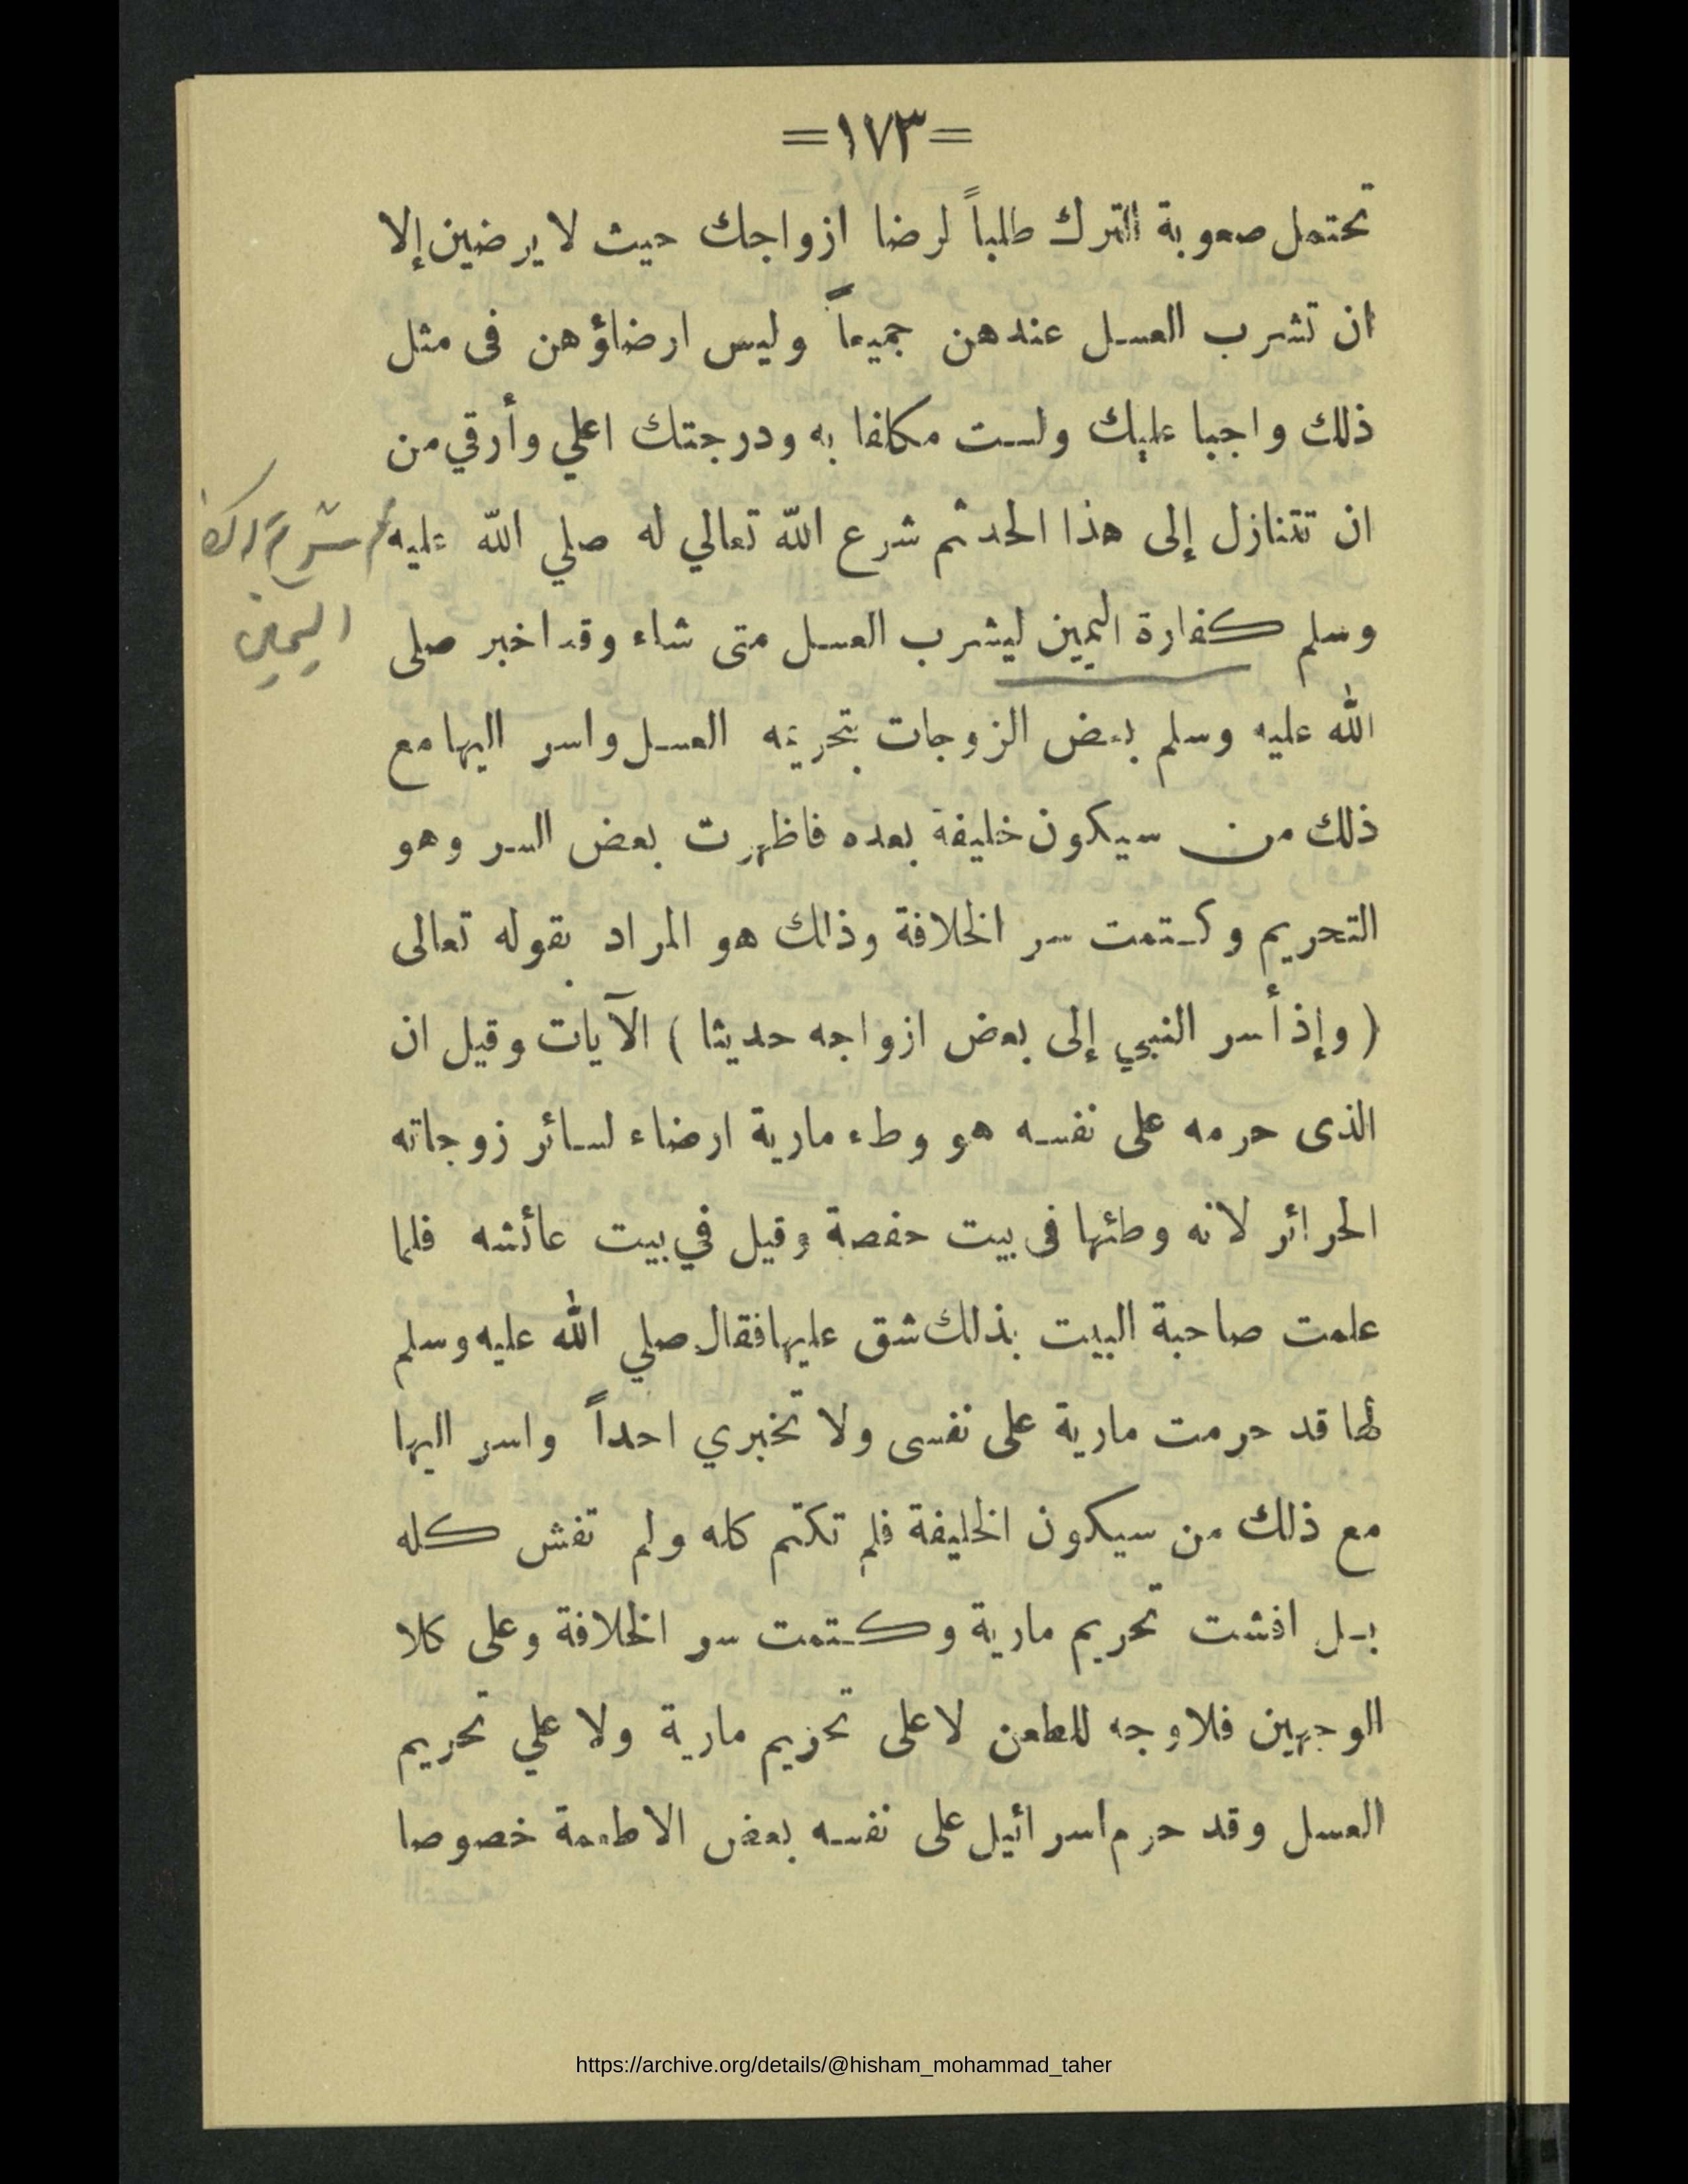 =١٧٣=
تحتمل صعوبة الترك طلباً لرضا ازواجك حيث لا يرضين إلا
ان تشرب العسل عندهن جميعاً وليس ارضاؤهن فى مثل
ذلك واجبا عليك ولست مكلفا به ودرجتك اعلي وأرقي من
ان تتنازل إلى هذا الحد ثم شرع الله تعالي له صلي الله عليه
وسلم كفارة اليمين ليشرب العسل متى شاء وقد اخبر صلى
الله عليه وسلم بعض الزوجات بتحريمه العسل واسر اليها مع
ذلك من سيكون خليفة بعده فاظهرت بعض السر وهو
التحريم وكتمت سر الخلافة وذلك هو المراد بقوله تعالى
( وإذ أسر النبي إلى بعض ازواجه حديثا ) الآيات وقيل ان
الذى حرمه على نفسه هو وطء مارية ارضاء لسائر زوجاته
الحرائر لانه وطئها فى بيت حفصة وقيل في بيت عائشه فلما
علمت صاحبة البيت بذلك شق عليها فقال صلي الله عليه وسلم
لها قد حرمت مارية على نفسى ولا تخبري احداً واسر اليها
مع ذلك من سيكون الخليفة فلم تكتم كله ولم تفش كله
بل افشت تحريم مارية وكتمت سر الخلافة وعلى كلا
الوجهين فلا وجه للطعن لا على تحزيم مارية ولا علي تحريم
العسل وقد حرم اسرائيل على نفسه بعض الاطعمة خصوصا
اليمين
https://archive.org/details/@hisham_mohammad_taher